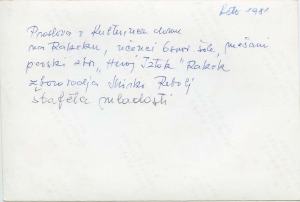 Leto 1981
Proslava v Kulturnem domu
na Rakeku, učenci Osnov. šole, mešani
pevski zbor "Heroj Iztok" Rakek
zborovodja Mirko Rebolj
štafeta mladosti